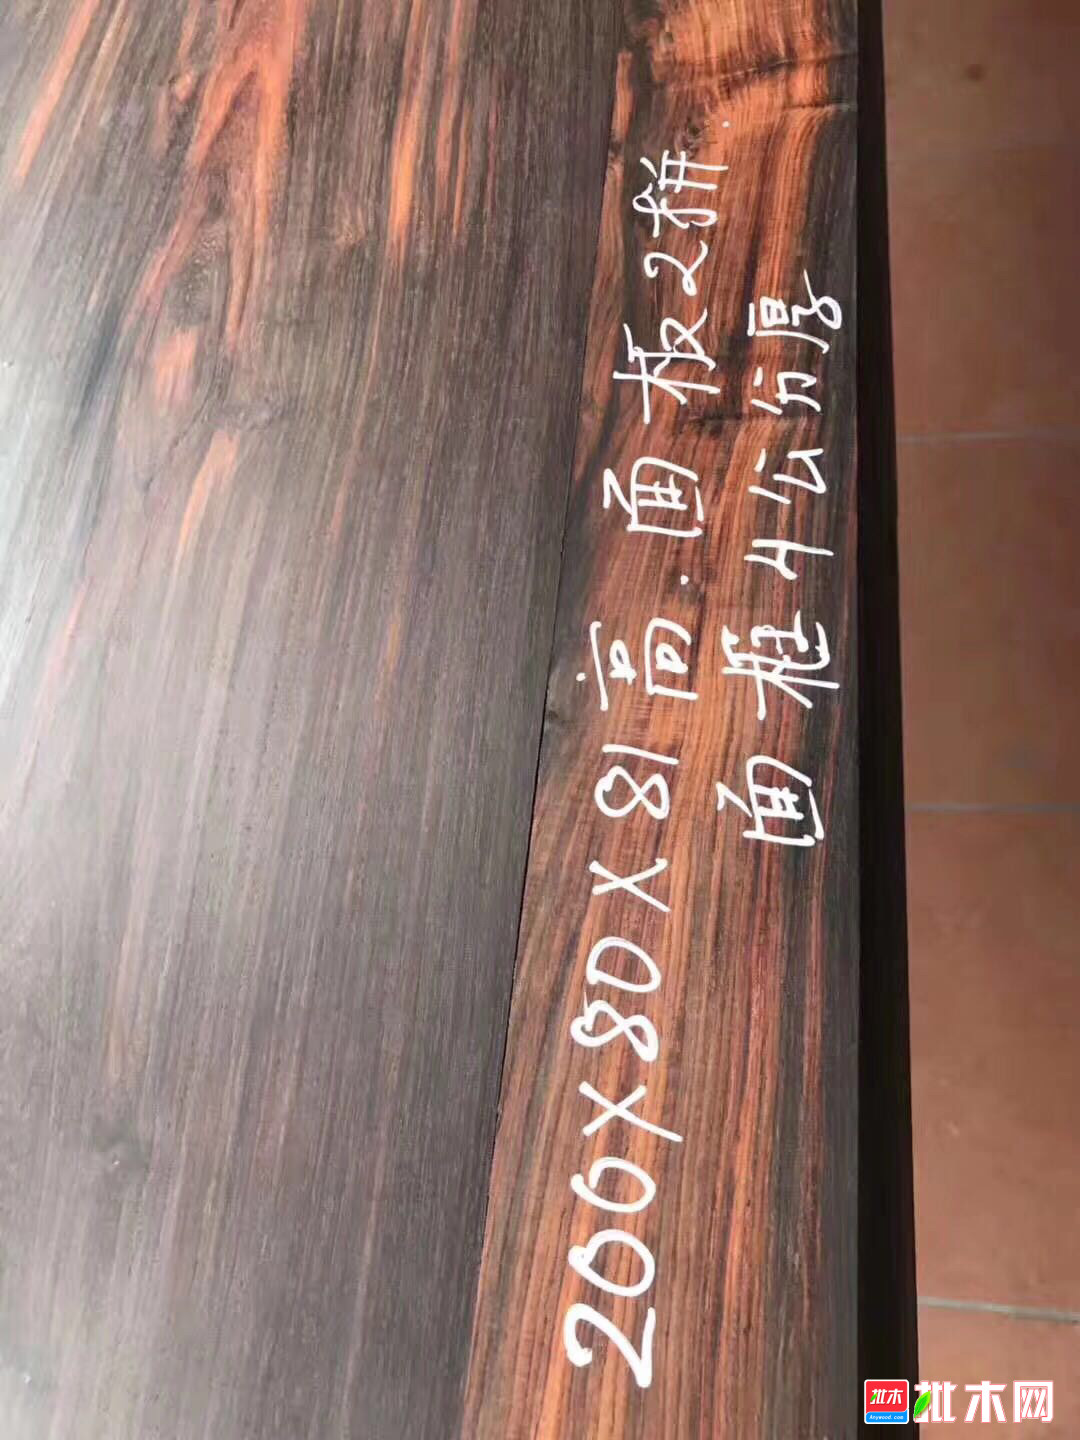 200X80X81高.面板2拼.
面框4公分厚
批木
Anywood.com
批木网